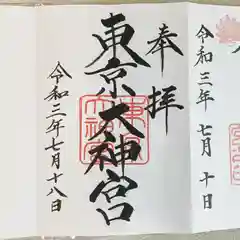 令和三年七月十日
奉拝
東京大神宮
令和三年七月十八日